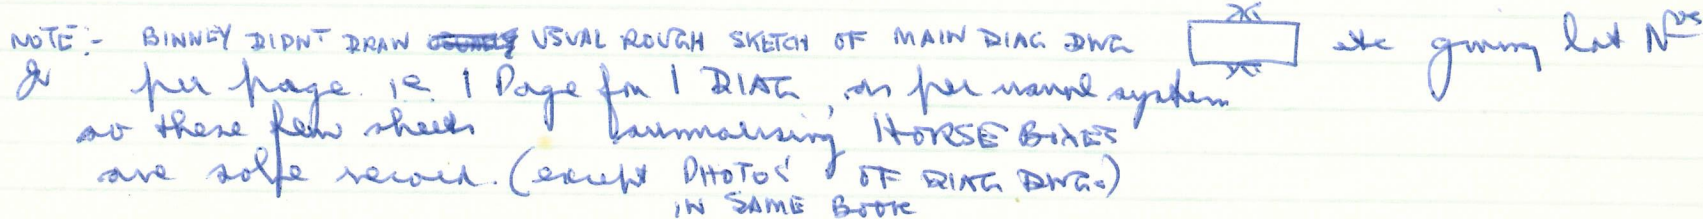 NOTE:- BINNEY DIDNT DRAW USUAL ROUGH SKETCH OF MAIN DIAG DWG etc giving lot Nos
per page. i.e. 1 Page for 1 DIAG, as per usual system
so these few sheets summarising HORSE BOXES
are sole record. (except PHOTOS' OF DIAG DWG.)
IN SAME BOOK